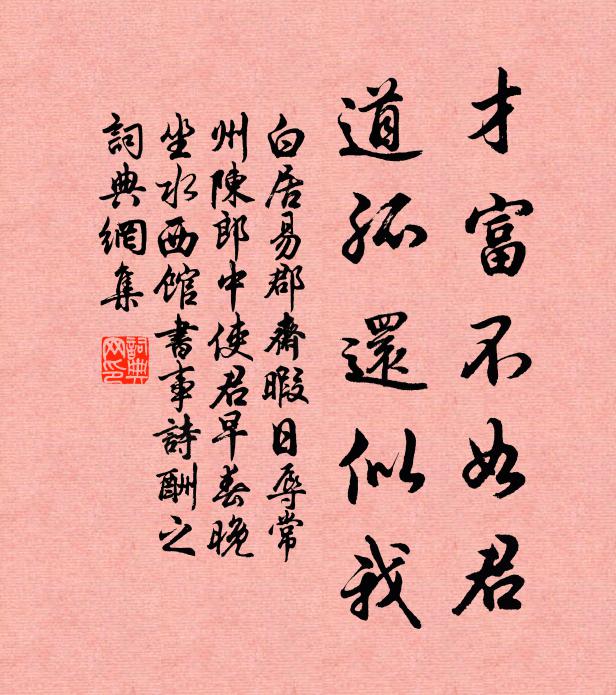 才富不如君
道孤還似我
白居易郡齋暇日辱常
州陳郎中使君早春晚
坐水西館書事詩酬之
詞典網集
詞典网印